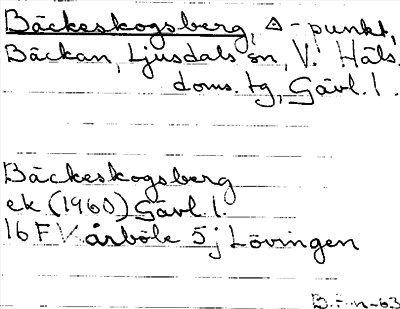 Bäckeskogsberg, △-punkt,
Bäckan, Ljusdals sn, V. Häls.
doms. tg, Gävl. l.
Bäckeskogsberg
ek (1960) Gävl. l.
16F Vårböle 5j Lövingen